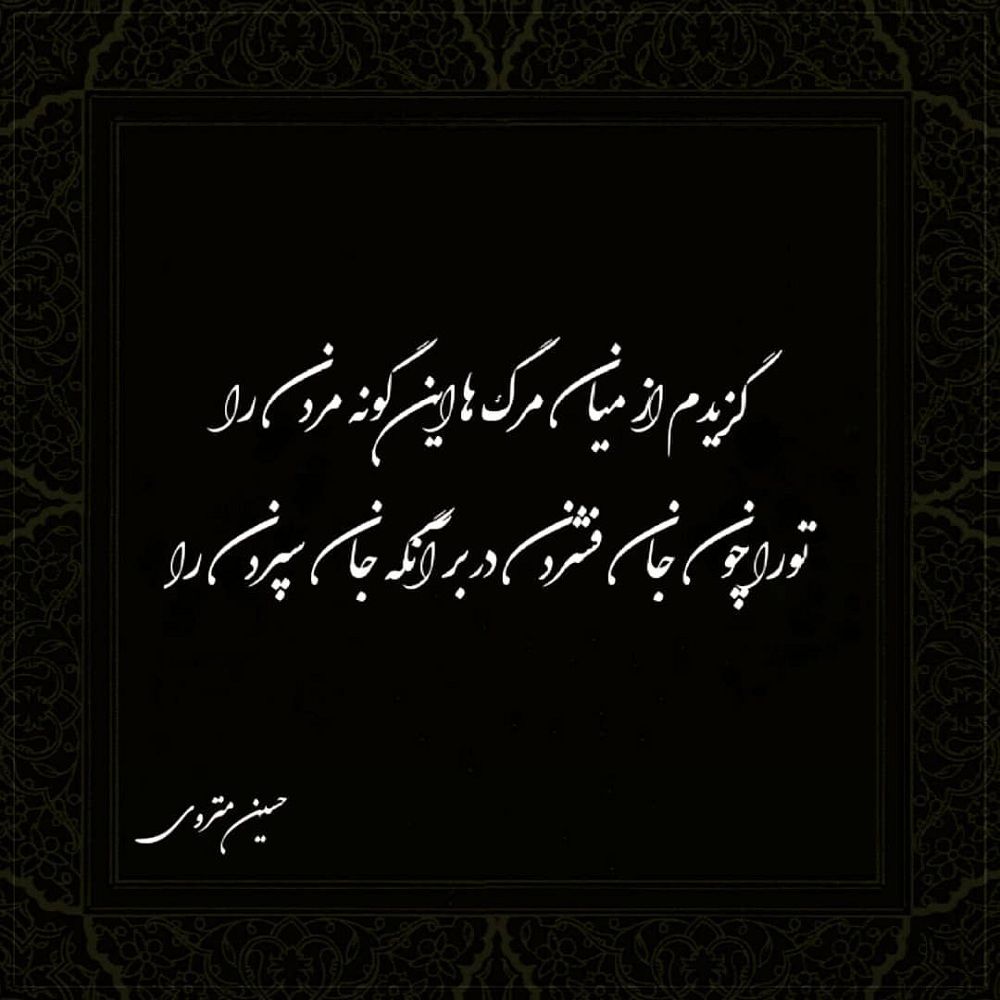 گزیدم از میان مرگ ها این گونه مردن را
تو را چون جان فشردن در بر آنگه جان سپردن را
حسین منزوی